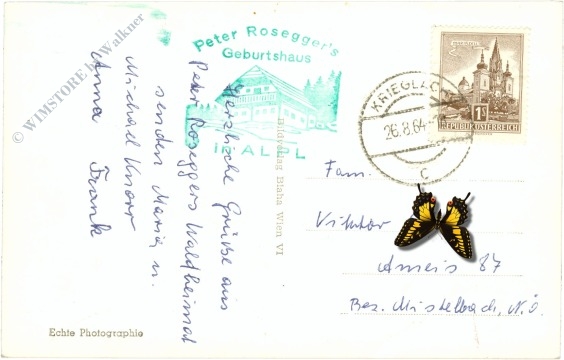 © WIMSTORE.AT Walkner
Peter Rosegger's
Geburtshaus
in ALPL
Herzliche Grüße aus
Peter Roseggers Waldheimat
senden Maria u.
Michael Knorr
Anna Frank
Echte Photographie
Bildverlag Blaha Wien VI
KRIEGLACH
26.8.64
C
1S
REPUBLIK ÖSTERREICH
Fam.
Viktor
Ameis 87
Bez. Mistelbach, N.Ö.